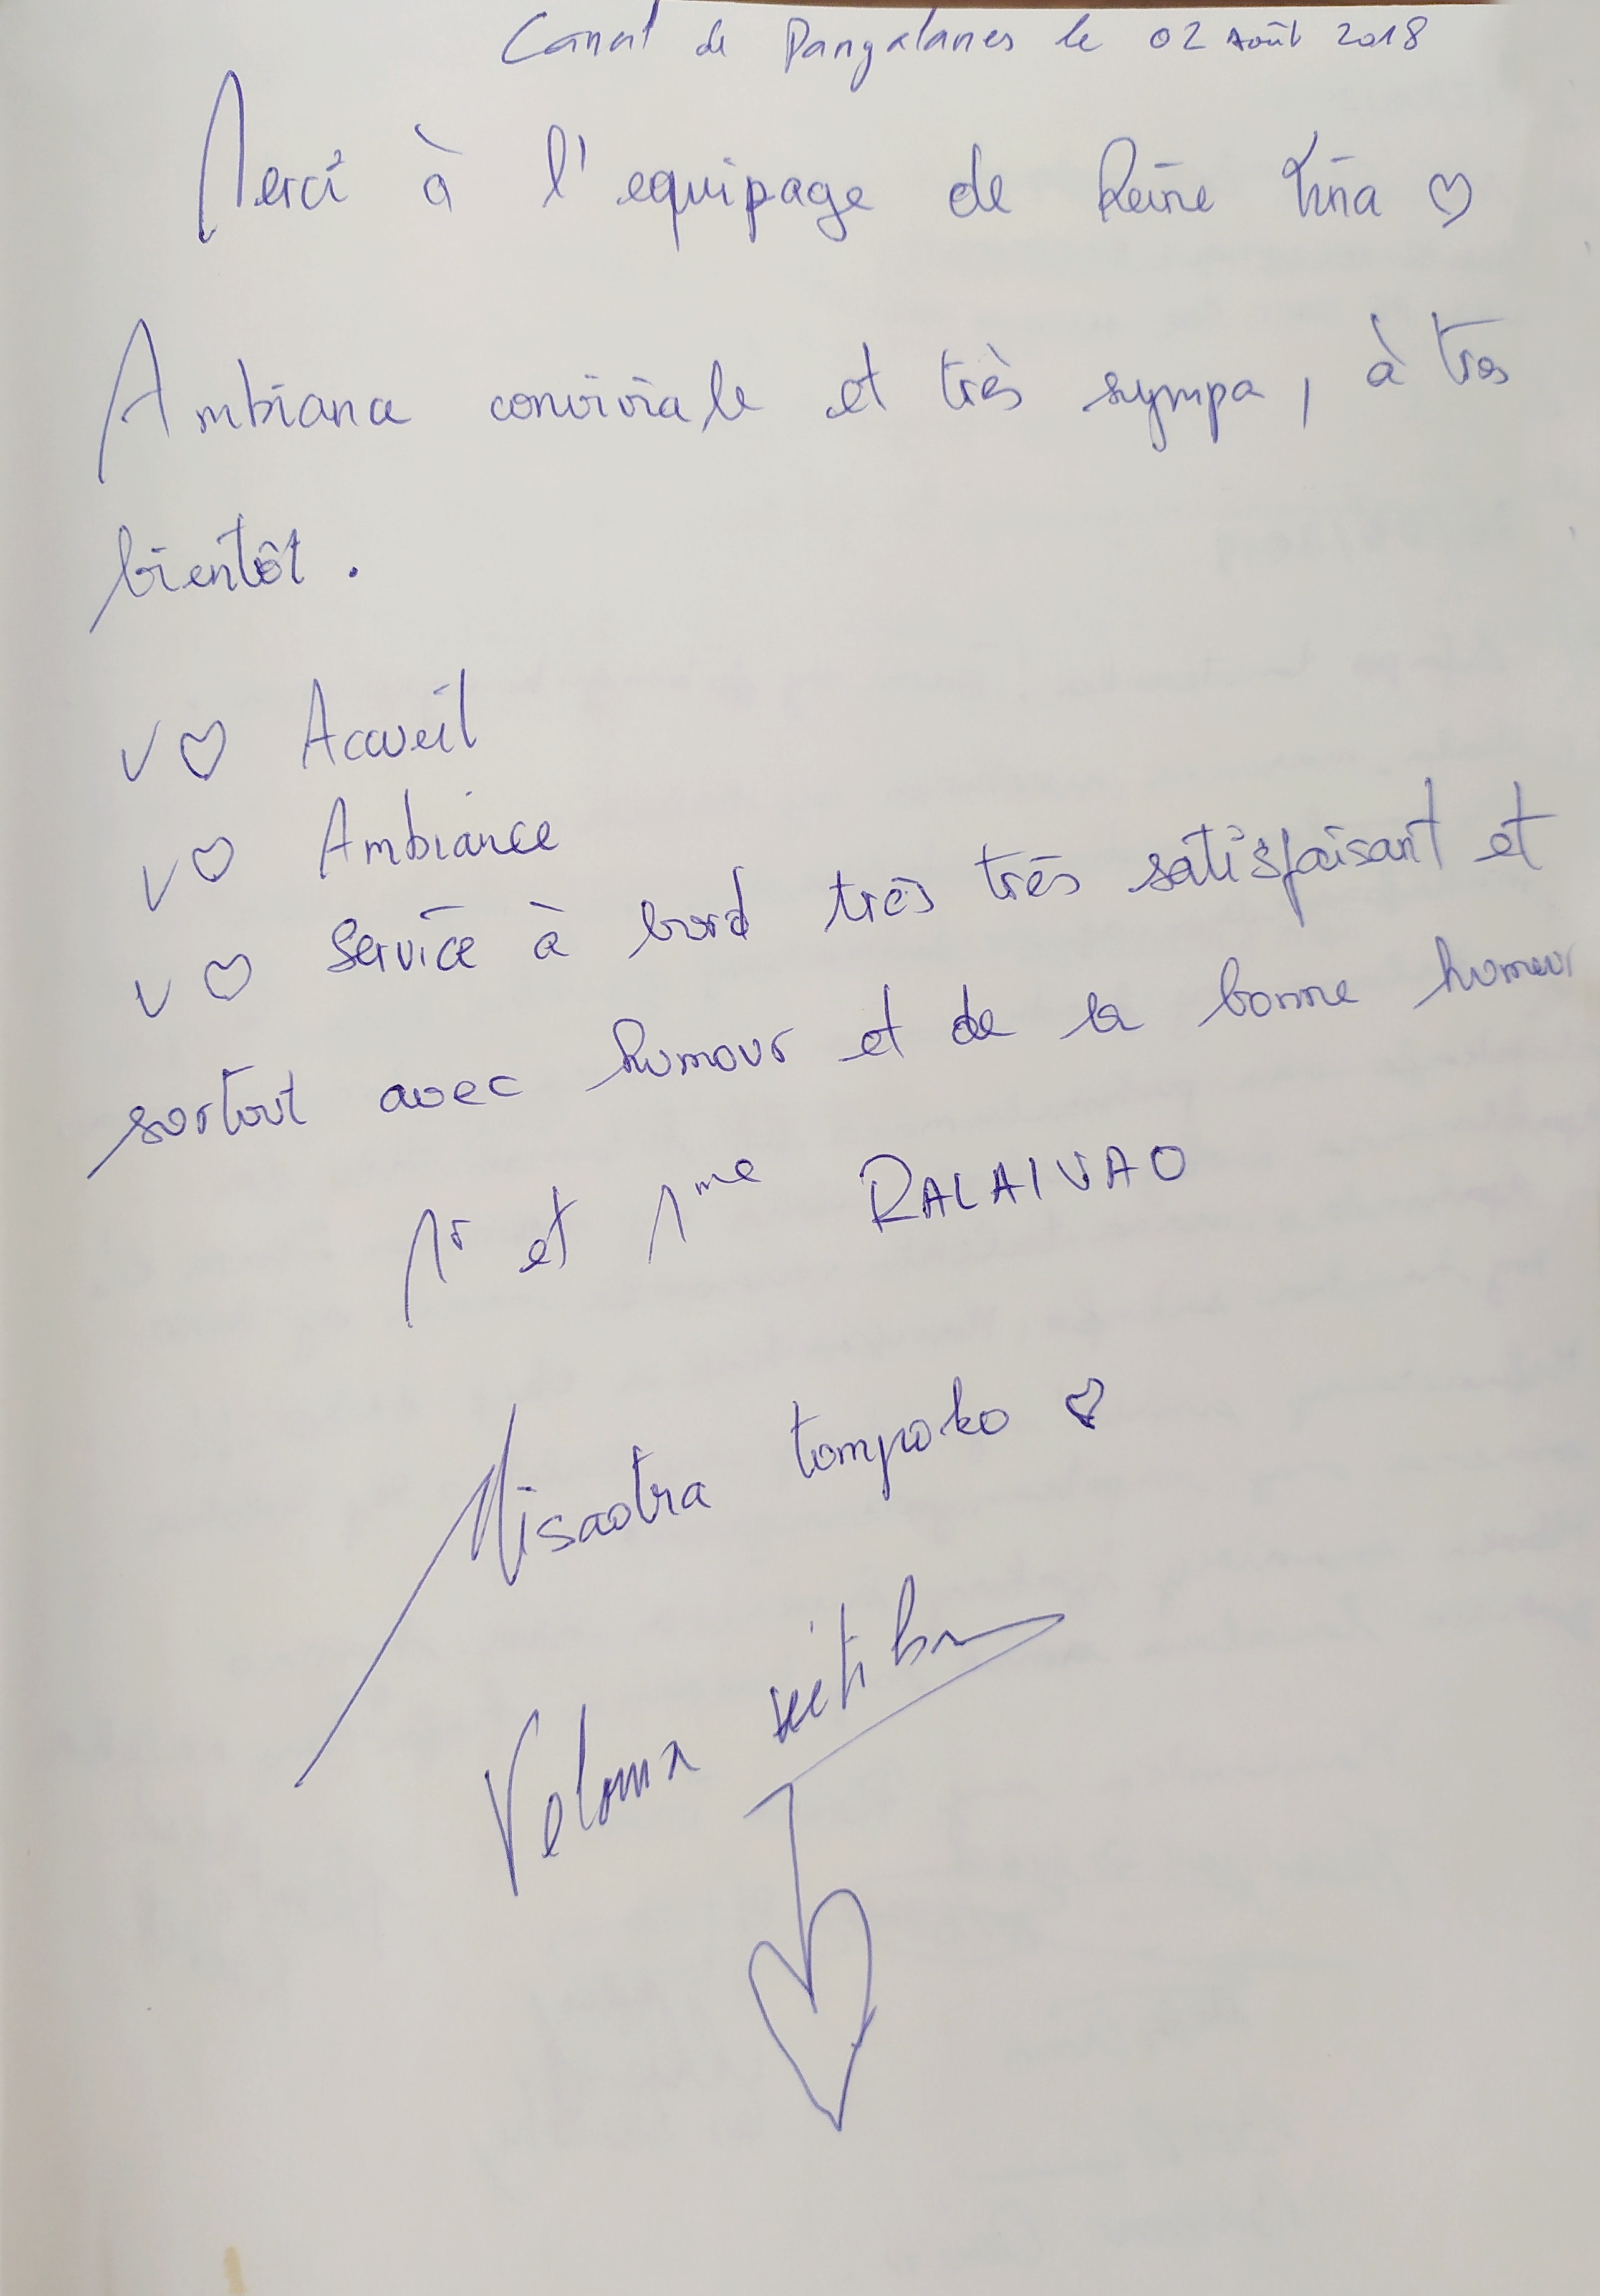 Canal de Pangalanes le 02 Août 2018
Merci à l'equipage de Reine Tina ♡
Ambiance conviviale et très sympa, à très
bientôt.
✓ ♡ Accueil
✓ ♡ Ambiance
✓ ♡ Service à bord très très satisfaisant et
sortout avec humour et de la bonne humeur
Mr et Mme RALAIVAO
Misaotra tompoko ♡
Veloma